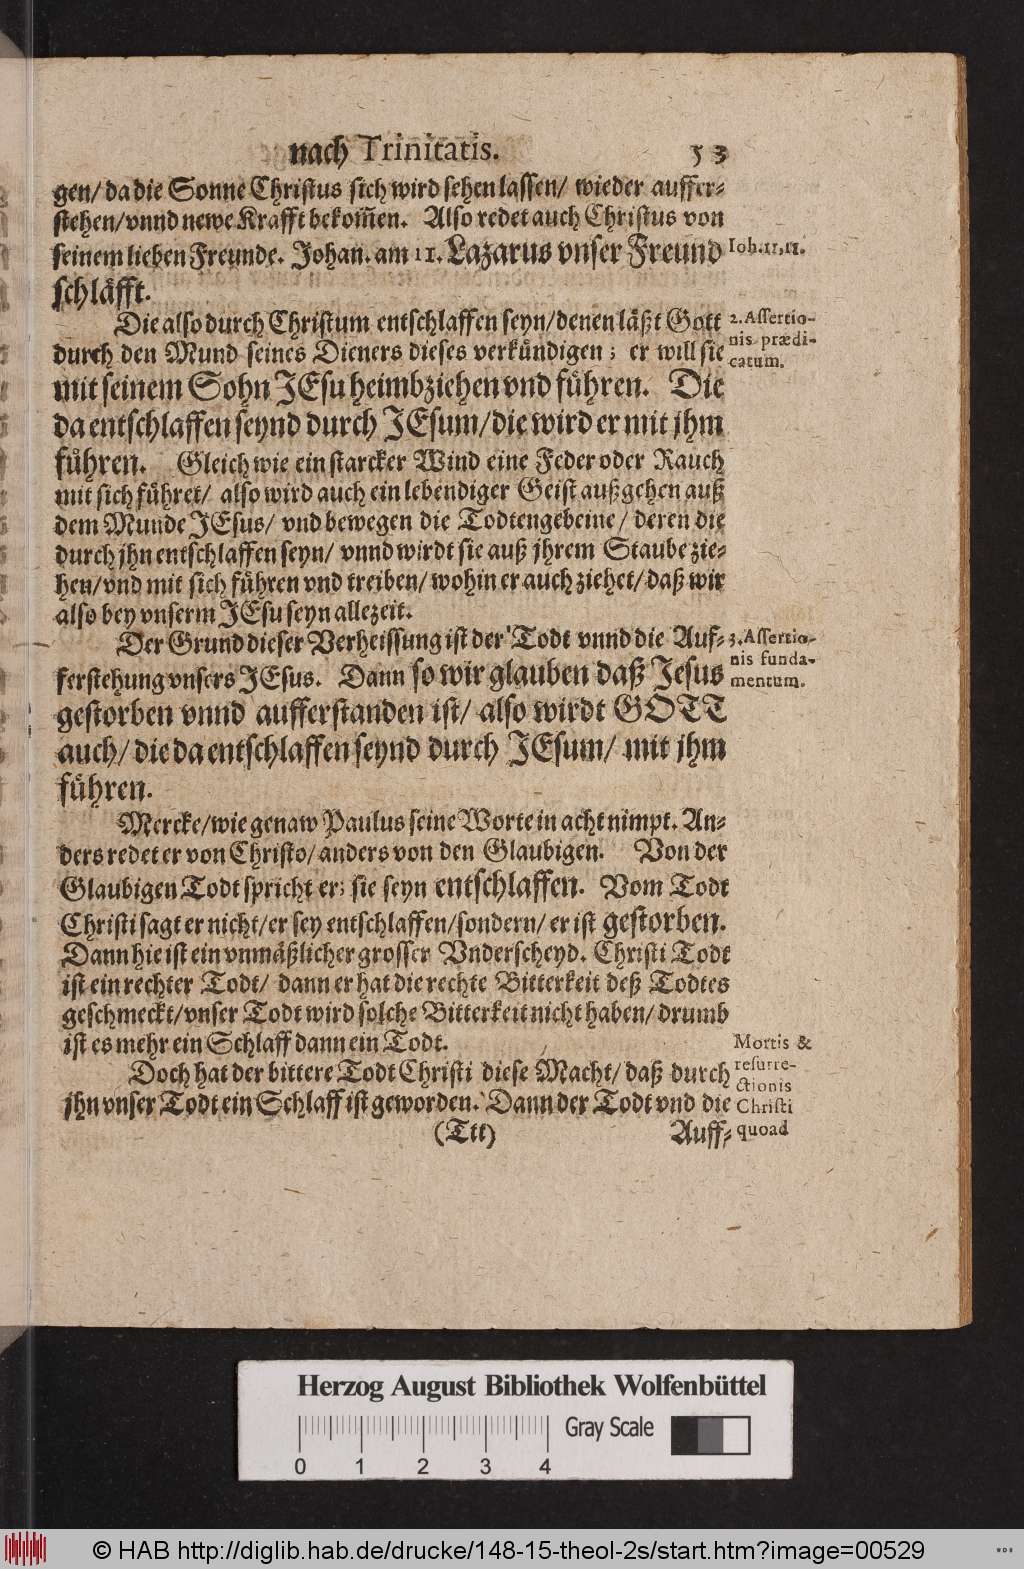 nach Trinitatis. 53
gen/ da die Sonne Christus sich wird sehen lassen/ wieder auffer-
stehen/ vnnd newe Krafft bekom̃en. Also redet auch Christus von
seinem lieben Freunde. Johan. am 11. Lazarus vnser Freund
Ioh. 11, 11.
schläfft.
Die also durch Christum entschlaffen seyn/ denen läßt Gott
2. Assertio-
durch den Mund seines Dieners dieses verkündigen; er will sie
nis prædi-
catum.
mit seinem Sohn JEsu heimbziehen vnd führen. Die
da entschlaffen seynd durch JEsum/ die wird er mit jhm
führen. Gleich wie ein starcker Wind eine Feder oder Rauch
mit sich führet/ also wird auch ein lebendiger Geist außgehen auß
dem Munde JEsus/ vnd bewegen die Todtengebeine/ deren die
durch jhn entschlaffen seyn/ vnnd wirdt sie auß jhrem Staube zie-
hen/ vnd mit sich führen vnd treiben/ wohin er auch ziehet/ daß wir
also bey vnserm JEsu seyn allezeit.
Der Grund dieser Verheissung ist der Todt vnnd die Auf-
3. Assertio-
nis funda-
ferstehung vnsers JEsus. Dann so wir glauben daß Jesus
mentum.
gestorben vnnd aufferstanden ist/ also wirdt GOTT
auch/ die da entschlaffen seynd durch JEsum/ mit jhm
führen.
Mercke/ wie genaw Paulus seine Worte in acht nimpt. An-
ders redet er von Christo/ anders von den Glaubigen. Von der
Glaubigen Todt spricht er; sie seyn entschlaffen. Vom Todt
Christi sagt er nicht/ er sey entschlaffen/ sondern/ er ist gestorben.
Dann hie ist ein vnmäßlicher grosser Vnderscheyd. Christi Todt
ist ein rechter Todt/ dann er hat die rechte Bitterkeit deß Todtes
geschmeckt/ vnser Todt wird solche Bitterkeit nicht haben/ drumb
ist es mehr ein Schlaff dann ein Todt.
Mortis &
Doch hat der bittere Todt Christi diese Macht/ daß durch
resurre-
ctionis
jhn vnser Todt ein Schlaff ist geworden. Dann der Todt vnd die
Christi
(Ttt) Auff-
quoad
Herzog August Bibliothek Wolfenbüttel
Gray Scale
0 1 2 3 4
© HAB http://diglib.hab.de/drucke/148-15-theol-2s/start.htm?image=00529